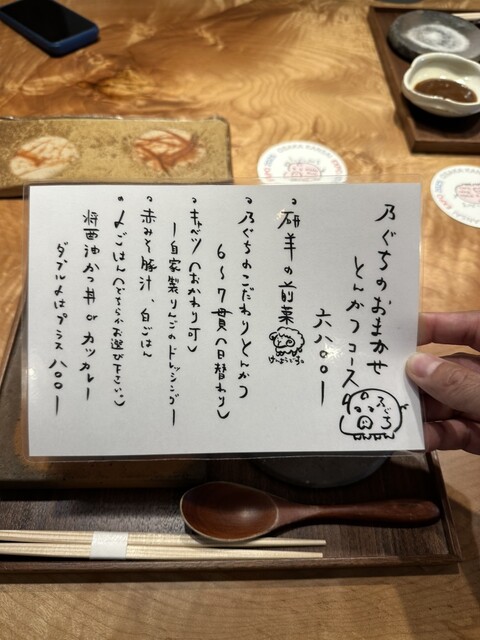 乃ぐちのおまかせ
とんかつコース
六八〇〇ー
・研羊の前菜
・乃ぐちのこだわりとんかつ
6〜7貫(日替わり)
・キャベツ(おかわり可)
ー自家製りんごのドレッシングー
・赤みそ豚汁、白ごはん
・〆ごはん(どちらかお選び下さい。)
醤油かつ丼 or カツカレー
ダブル〆はプラス八〇〇ー